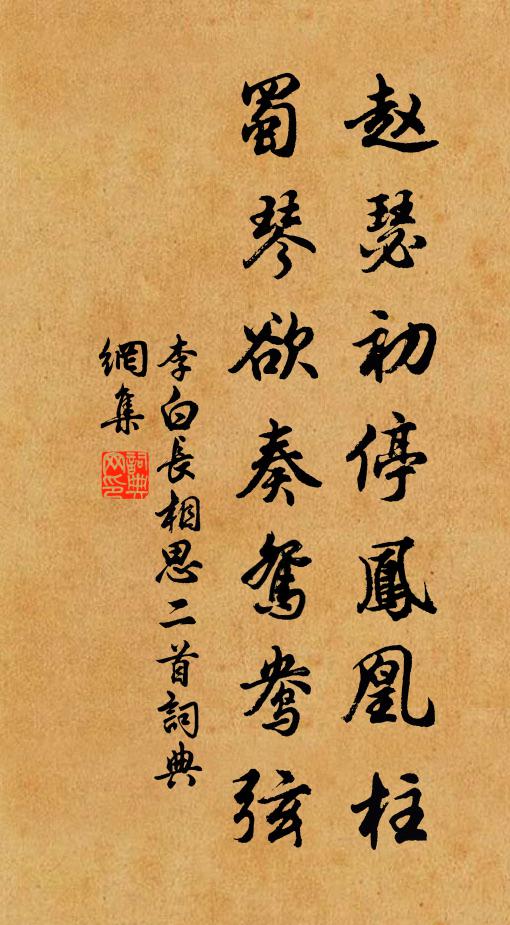 赵瑟初停鳳凰柱
蜀琴欲奏鸳鸯弦
李白長相思二首詞典
網集
詞典
网印